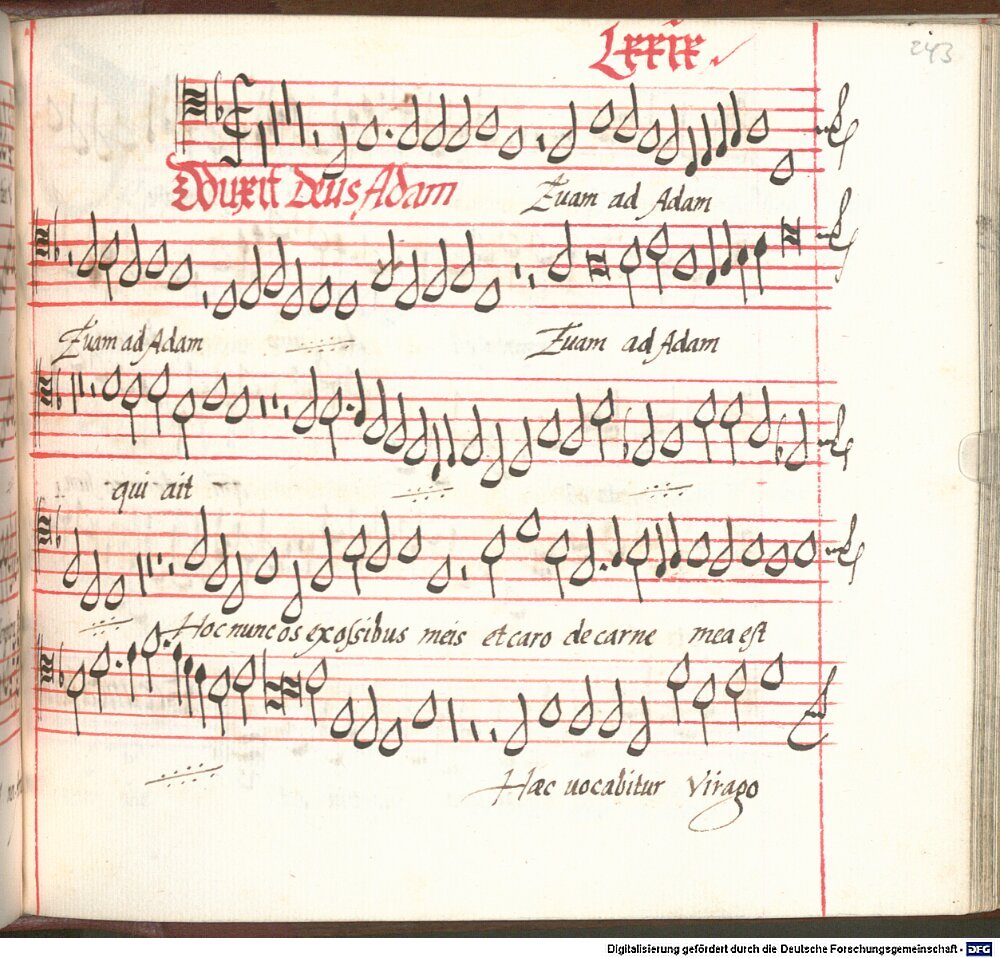 LXXIX.
243
Duxit Deus Adam Euam ad Adam
Euam ad Adam Euam ad Adam
qui ait
Hoc nunc os ex ossibus meis et caro de carne mea est
Hæc uocabitur Virago
Digitalisierung gefördert durch die Deutsche Forschungsgemeinschaft - DFG